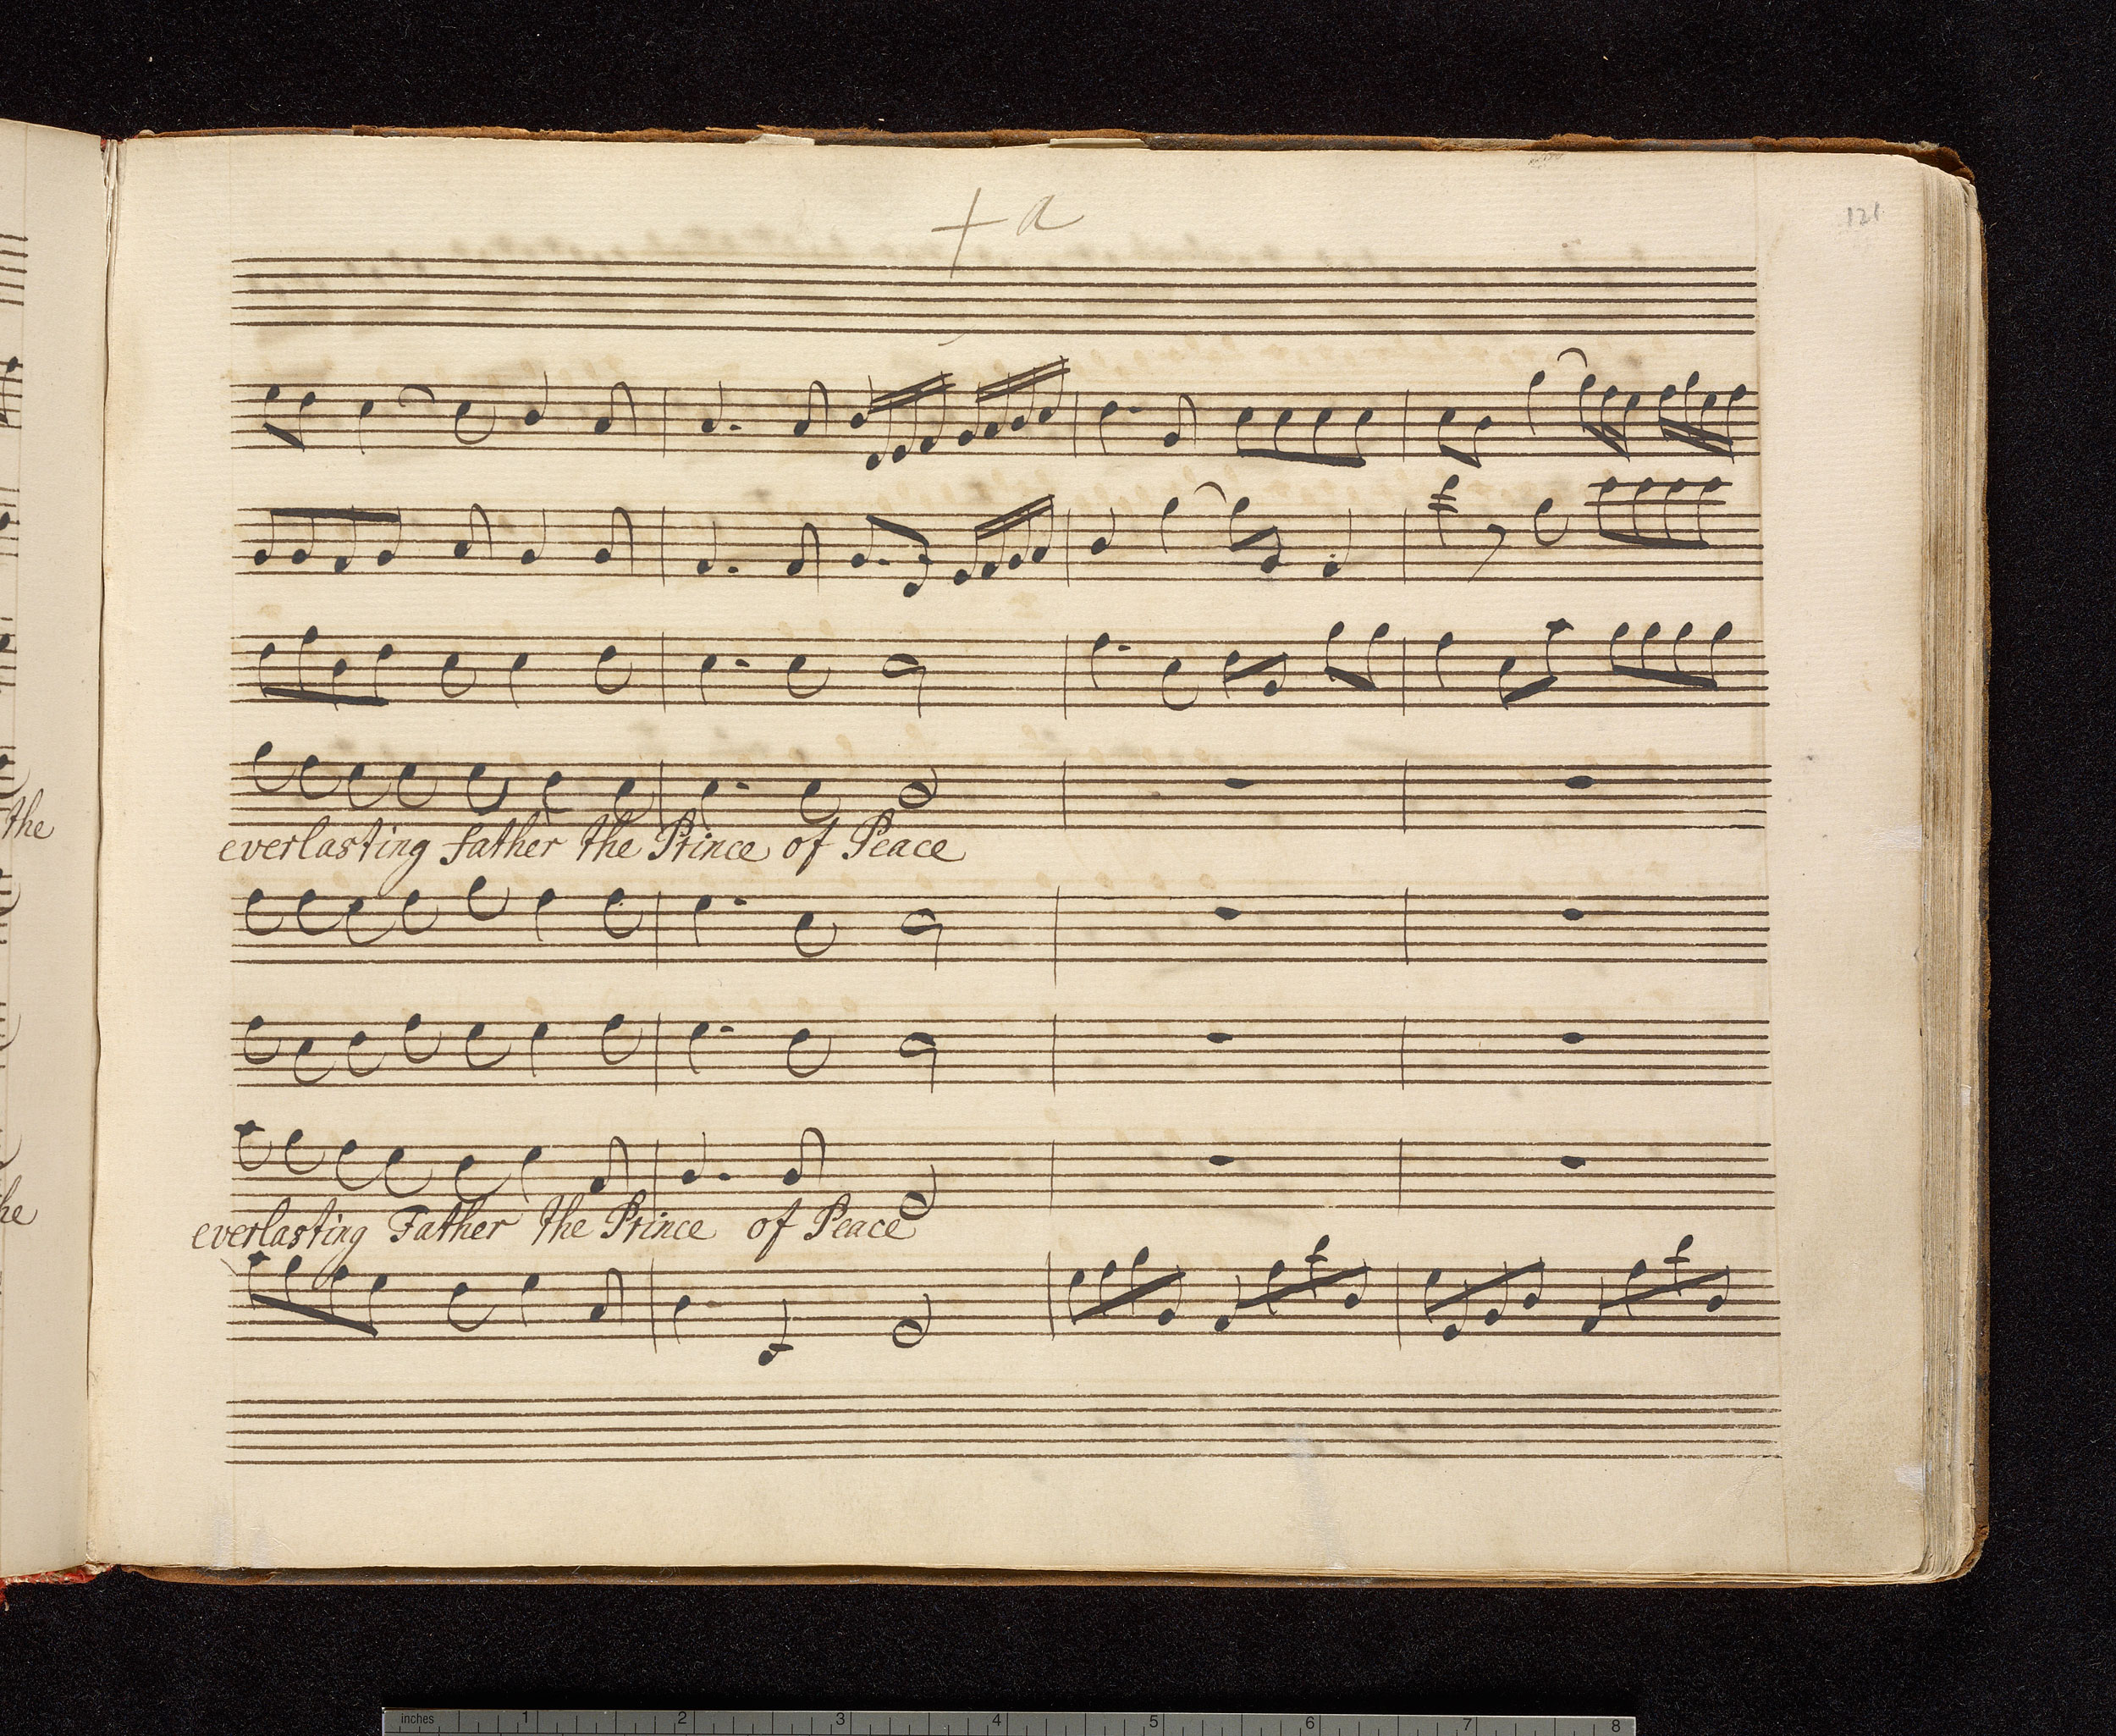 + a
121
the
everlasting father the Prince of Peace
he
everlasting Father the Prince of Peace
inches 1 2 3 4 5 6 7 8